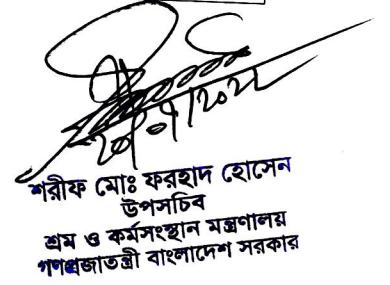 শরীফ মোঃ ফরহাদ হোসেন
উপসচিব
শ্রম ও কর্মসংস্থান মন্ত্রণালয়
গণপ্রজাতন্ত্রী বাংলাদেশ সরকার